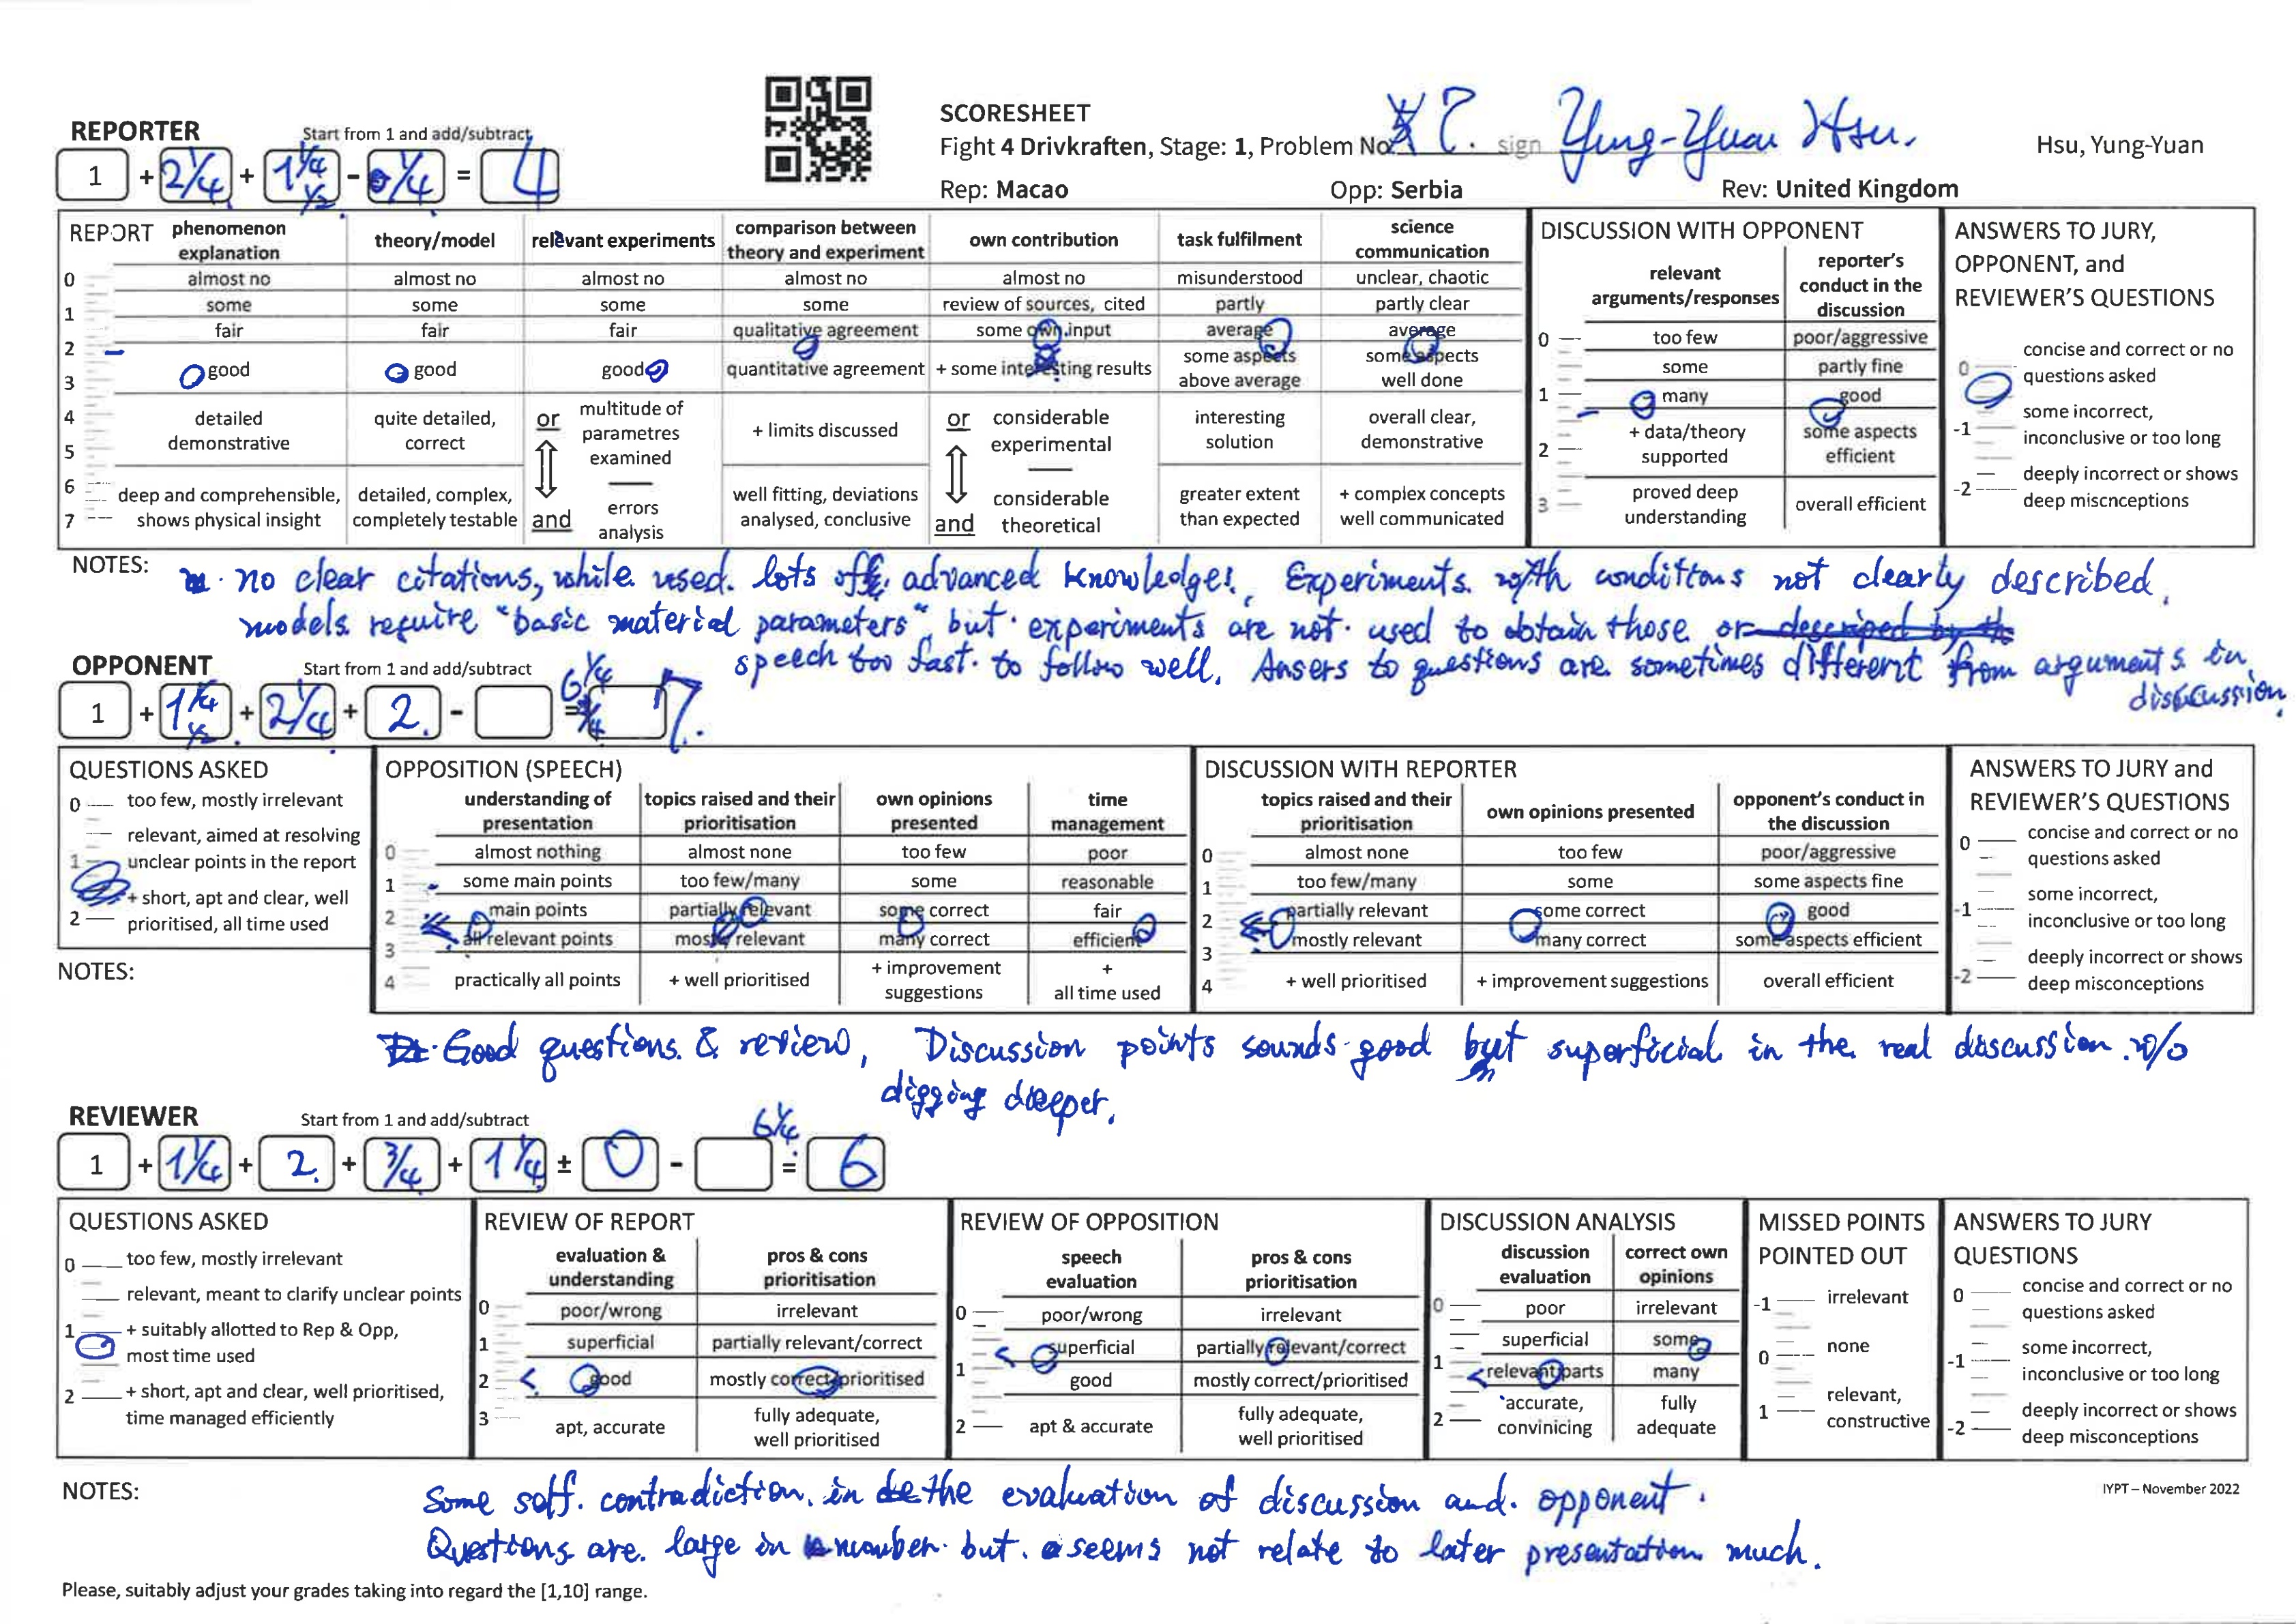 SCORESHEET
REPORTER Start from 1 and add/subtract
Fight 4 Drivkraften, Stage: 1, Problem No. 7. sign Yung-Yuan Hsu. Hsu, Yung-Yuan
1 + 2 1/4 + 1 1/4 1/2 - 1/4 = 4
Rep: Macao Opp: Serbia Rev: United Kingdom
REPORT
phenomenon explanation
theory/model
relevant experiments
comparison between theory and experiment
own contribution
task fulfilment
science communication
0 almost no almost no almost no almost no almost no misunderstood unclear, chaotic
1 some some some some review of sources, cited partly partly clear
2 fair fair fair qualitative agreement some own input average average
3 good good good quantitative agreement + some interesting results some aspects above average some aspects well done
4 5 detailed demonstrative quite detailed, correct or multitude of parametres examined + limits discussed or considerable experimental interesting solution overall clear, demonstrative
6 7 deep and comprehensible, shows physical insight detailed, complex, completely testable and errors analysis well fitting, deviations analysed, conclusive and considerable theoretical greater extent than expected + complex concepts well communicated
DISCUSSION WITH OPPONENT
relevant arguments/responses reporter's conduct in the discussion
0 too few poor/aggressive
some partly fine
1 many good
2 + data/theory supported some aspects efficient
3 proved deep understanding overall efficient
ANSWERS TO JURY, OPPONENT, and REVIEWER'S QUESTIONS
0 concise and correct or no questions asked
-1 some incorrect, inconclusive or too long
-2 deeply incorrect or shows deep miscnceptions
NOTES: no clear citations, while used. lots off advanced knowledge. Experiments with conditions not clearly described,
models require "basic material parameters" but experiments are not used to obtain those or
speech too fast to follow well. Ansers to questions are sometimes different from arguments in
discussion
OPPONENT Start from 1 and add/subtract
1 + 1 1/4 1/2 + 2 1/4 + 2. - = 6 1/4 7.
QUESTIONS ASKED
0 too few, mostly irrelevant
relevant, aimed at resolving
1 unclear points in the report
+ short, apt and clear, well
2 prioritised, all time used
OPPOSITION (SPEECH)
understanding of presentation topics raised and their prioritisation own opinions presented time management
0 almost nothing almost none too few poor
1 some main points too few/many some reasonable
2 main points partially relevant some correct fair
3 all relevant points mostly relevant many correct efficient
4 practically all points + well prioritised + improvement suggestions + all time used
DISCUSSION WITH REPORTER
topics raised and their prioritisation own opinions presented opponent's conduct in the discussion
0 almost none too few poor/aggressive
1 too few/many some some aspects fine
2 partially relevant some correct good
3 mostly relevant many correct some aspects efficient
4 + well prioritised + improvement suggestions overall efficient
ANSWERS TO JURY and REVIEWER'S QUESTIONS
0 concise and correct or no questions asked
-1 some incorrect, inconclusive or too long
-2 deeply incorrect or shows deep misconceptions
NOTES:
Good questions & review, Discussion points sounds good but superficial in the real discussion w/o
digging deeper.
REVIEWER Start from 1 and add/subtract
1 + 1 1/4 + 2. + 3/4 + 1 1/4 ± 0 - = 6 1/4 6
QUESTIONS ASKED
0 too few, mostly irrelevant
relevant, meant to clarify unclear points
1 + suitably allotted to Rep & Opp, most time used
2 + short, apt and clear, well prioritised, time managed efficiently
REVIEW OF REPORT
evaluation & understanding pros & cons prioritisation
0 poor/wrong irrelevant
1 superficial partially relevant/correct
2 good mostly correct/prioritised
3 apt, accurate fully adequate, well prioritised
REVIEW OF OPPOSITION
speech evaluation pros & cons prioritisation
0 poor/wrong irrelevant
superficial partially relevant/correct
1 good mostly correct/prioritised
2 apt & accurate fully adequate, well prioritised
DISCUSSION ANALYSIS
discussion evaluation correct own opinions
0 poor irrelevant
superficial some
1 relevant parts many
2 accurate, convinicing fully adequate
MISSED POINTS POINTED OUT
-1 irrelevant
0 none
1 relevant, constructive
ANSWERS TO JURY QUESTIONS
0 concise and correct or no questions asked
-1 some incorrect, inconclusive or too long
-2 deeply incorrect or shows deep misconceptions
NOTES: IYPT – November 2022
Some contradiction in the evaluation of discussion and opponent.
Questions are large in number but seems not relate to later presentation much.
Please, suitably adjust your grades taking into regard the [1,10] range.